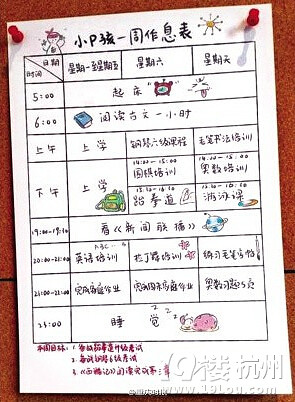 小P孩一周作息表
日期
时间
星期一至星期五
星期六
星期天
5:00
起床
6:00
阅读古文一小时
上午
上学
钢琴六级课程
毛笔书法培训
下午
上学
14:00-15:00
围棋培训
14:00-15:00
奥数培训
15:10-16:10
跆拳道
15:10-16:10
游泳课
19:00-19:30
看《新闻联播》
20:00-21:00
ABC...
英语培训
拉丁舞培训
练习毛笔字帖
21:00-22:00
完成家庭作业
完成周末家庭作业
奥数习题5页
23:00
睡觉 z z z
本周目标:1.
2. 备战钢琴6级考试
3.《西游记》阅读完成第
19楼 杭州